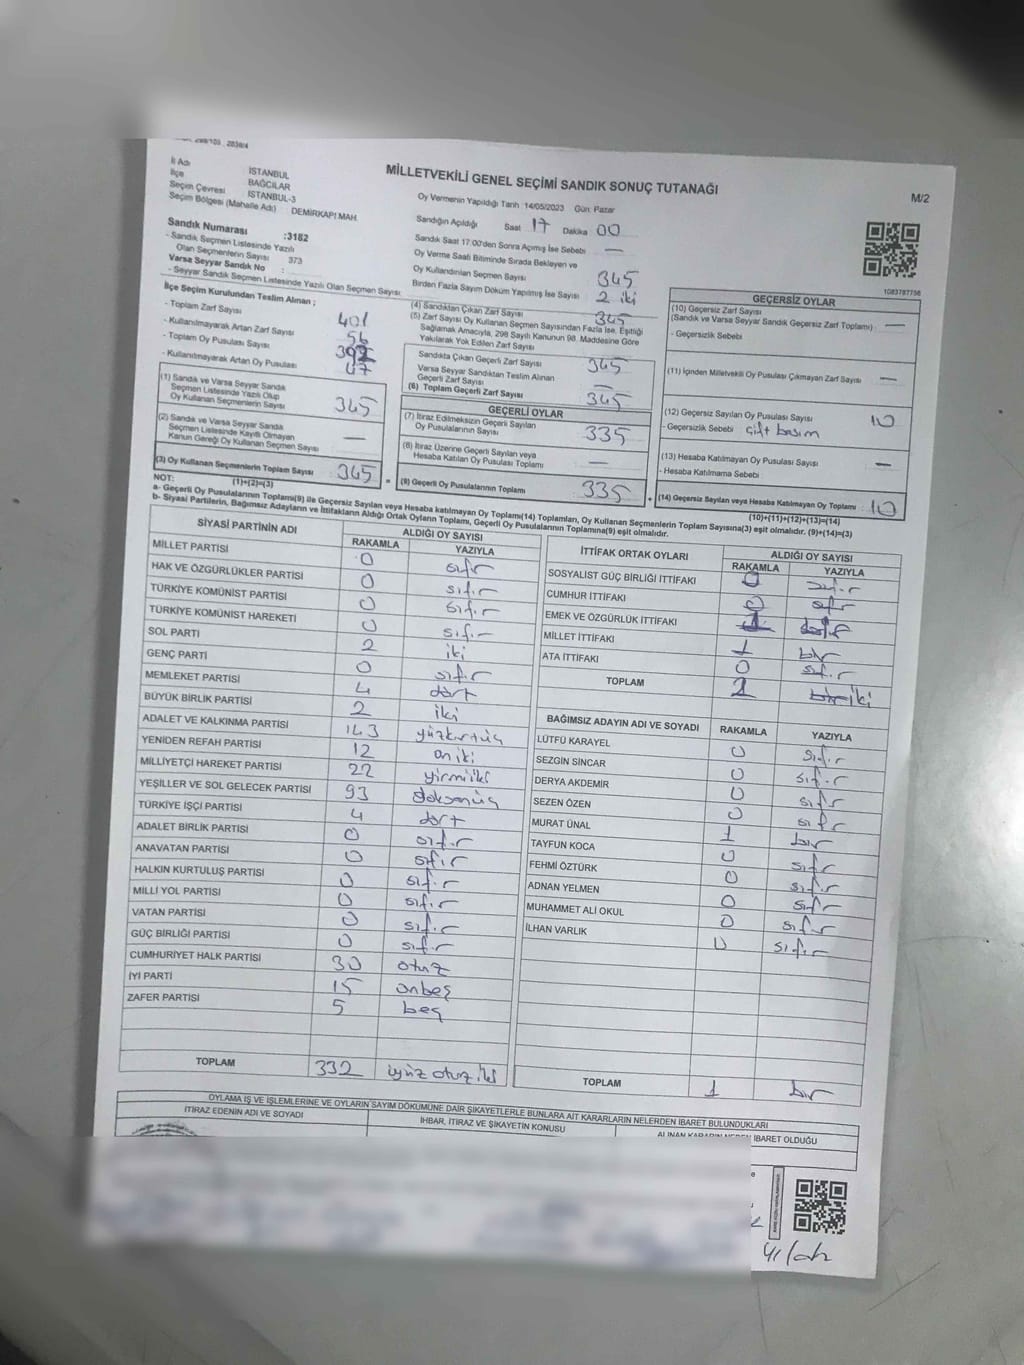 MİLLETVEKİLİ GENEL SEÇİMİ SANDIK SONUÇ TUTANAĞI
M/2
İl Adı : İSTANBUL
İlçe : BAĞCILAR
Seçim Çevresi : İSTANBUL-3
Seçim Bölgesi (Mahalle Adı) : DEMİRKAPI MAH.
Oy Vermenin Yapıldığı Tarih :14/05/2023 Gün: Pazar
Sandığın Açıldığı Saat 17 Dakika 00
Sandık Saat 17.00'den Sonra Açımış İse Sebebi —
Oy Verme Saati Bitiminde Sırada Bekleyen ve
Oy Kullandırılan Seçmen Sayısı 345
Birden Fazla Sayım Döküm Yapılmış İse Sayısı 2 iki
Sandık Numarası :3182
- Sandık Seçmen Listesinde Yazılı
Olan Seçmenlerin Sayısı 373
Varsa Seyyar Sandık No :
- Seyyar Sandık Seçmen Listesinde Yazılı Olan Seçmen Sayısı
İlçe Seçim Kurulundan Teslim Alınan ;
- Toplam Zarf Sayısı 401
- Kullanılmayarak Artan Zarf Sayısı 56
- Toplam Oy Pusulası Sayısı 392
- Kullanılmayarak Artan Oy Pusulası 47
(1) Sandık ve Varsa Seyyar Sandık
Seçmen Listesinde Yazılı Olup
Oy Kullanan Seçmenlerin Sayısı 345
(2) Sandık ve Varsa Seyyar Sandık
Seçmen Listesinde Kayıtlı Olmayan
Kanun Gereği Oy Kullanan Seçmen Sayısı —
(3) Oy Kullanan Seçmenlerin Toplam Sayısı 345
(1)+(2)=(3)
(4) Sandıktan Çıkan Zarf Sayısı 345
(5) Zarf Sayısı Oy Kullanan Seçmen Sayısından Fazla İse, Eşitliği
Sağlamak Amacıyla, 298 Sayılı Kanunun 98. Maddesine Göre
Yakılarak Yok Edilen Zarf Sayısı
Sandıkta Çıkan Geçerli Zarf Sayısı 345
Varsa Seyyar Sandıktan Teslim Alınan
Geçerli Zarf Sayısı —
(6) Toplam Geçerli Zarf Sayısı 345
GEÇERLİ OYLAR
(7) İtiraz Edilmeksizin Geçerli Sayılan
Oy Pusulalarının Sayısı 335
(8) İtiraz Üzerine Geçerli Sayılan veya
Hesaba Katılan Oy Pusulası Toplamı —
(9) Geçerli Oy Pusulalarının Toplamı 335
1083787758
GEÇERSİZ OYLAR
(10) Geçersiz Zarf Sayısı
(Sandık ve Varsa Seyyar Sandık Geçersiz Zarf Toplamı) : —
- Geçersizlik Sebebi
(11) İçinden Milletvekili Oy Pusulası Çıkmayan Zarf Sayısı —
(12) Geçersiz Sayılan Oy Pusulası Sayısı 10
- Geçersizlik Sebebi : Çift basım
(13) Hesaba Katılmayan Oy Pusulası Sayısı —
- Hesaba Katılmama Sebebi
(14) Geçersiz Sayılan veya Hesaba Katılmayan Oy Toplamı : 10
(10)+(11)+(12)+(13)=(14)
NOT:
a- Geçerli Oy Pusulalarının Toplamı(9) ile Geçersiz Sayılan veya Hesaba katılmayan Oy Toplamı(14) Toplamları, Oy Kullanan Seçmenlerin Toplam Sayısına(3) eşit olmalıdır. (9)+(14)=(3)
b- Siyasi Partilerin, Bağımsız Adayların ve İttifakların Aldığı Ortak Oyların Toplamı, Geçerli Oy Pusulalarının Toplamına(9) eşit olmalıdır.
SİYASİ PARTİNİN ADI ALDIĞI OY SAYISI
RAKAMLA YAZIYLA
MİLLET PARTİSİ 0 sıfır
HAK VE ÖZGÜRLÜKLER PARTİSİ 0 sıfır
TÜRKİYE KOMÜNİST PARTİSİ 0 sıfır
TÜRKİYE KOMÜNİST HAREKETİ 0 sıfır
SOL PARTİ 2 iki
GENÇ PARTİ 0 sıfır
MEMLEKET PARTİSİ 4 dört
BÜYÜK BİRLİK PARTİSİ 2 iki
ADALET VE KALKINMA PARTİSİ 143 yüzkırküç
YENİDEN REFAH PARTİSİ 12 oniki
MİLLİYETÇİ HAREKET PARTİSİ 22 yirmiiki
YEŞİLLER VE SOL GELECEK PARTİSİ 93 doksanüç
TÜRKİYE İŞÇİ PARTİSİ 4 dört
ADALET BİRLİK PARTİSİ 0 sıfır
ANAVATAN PARTİSİ 0 sıfır
HALKIN KURTULUŞ PARTİSİ 0 sıfır
MİLLİ YOL PARTİSİ 0 sıfır
VATAN PARTİSİ 0 sıfır
GÜÇ BİRLİĞİ PARTİSİ 0 sıfır
CUMHURİYET HALK PARTİSİ 30 otuz
İYİ PARTİ 15 onbeş
ZAFER PARTİSİ 5 beş
TOPLAM 332 üçyüz otuz iki
İTTİFAK ORTAK OYLARI ALDIĞI OY SAYISI
RAKAMLA YAZIYLA
SOSYALİST GÜÇ BİRLİĞİ İTTİFAKI 0 sıfır
CUMHUR İTTİFAKI 0 sıfır
EMEK VE ÖZGÜRLÜK İTTİFAKI 1
MİLLET İTTİFAKI 1 bir
ATA İTTİFAKI 0 sıfır
TOPLAM 2 bir iki
BAĞIMSIZ ADAYIN ADI VE SOYADI RAKAMLA YAZIYLA
LÜTFÜ KARAYEL 0 sıfır
SEZGİN SİNCAR 0 sıfır
DERYA AKDEMİR 0 sıfır
SEZEN ÖZEN 0 sıfır
MURAT ÜNAL 1 bir
TAYFUN KOCA 0 sıfır
FEHMİ ÖZTÜRK 0 sıfır
ADNAN YELMEN 0 sıfır
MUHAMMET ALİ OKUL 0 sıfır
İLHAN VARLIK 0 sıfır
TOPLAM 1 bir
OYLAMA İŞ VE İŞLEMLERİNE VE OYLARIN SAYIM DÖKÜMÜNE DAİR ŞİKAYETLERLE BUNLARA AİT KARARLARIN NELERDEN İBARET BULUNDUKLARI
İTİRAZ EDENİN ADI VE SOYADI İHBAR, İTİRAZ VE ŞİKAYETİN KONUSU ALINAN KARARIN NEDEN İBARET OLDUĞU